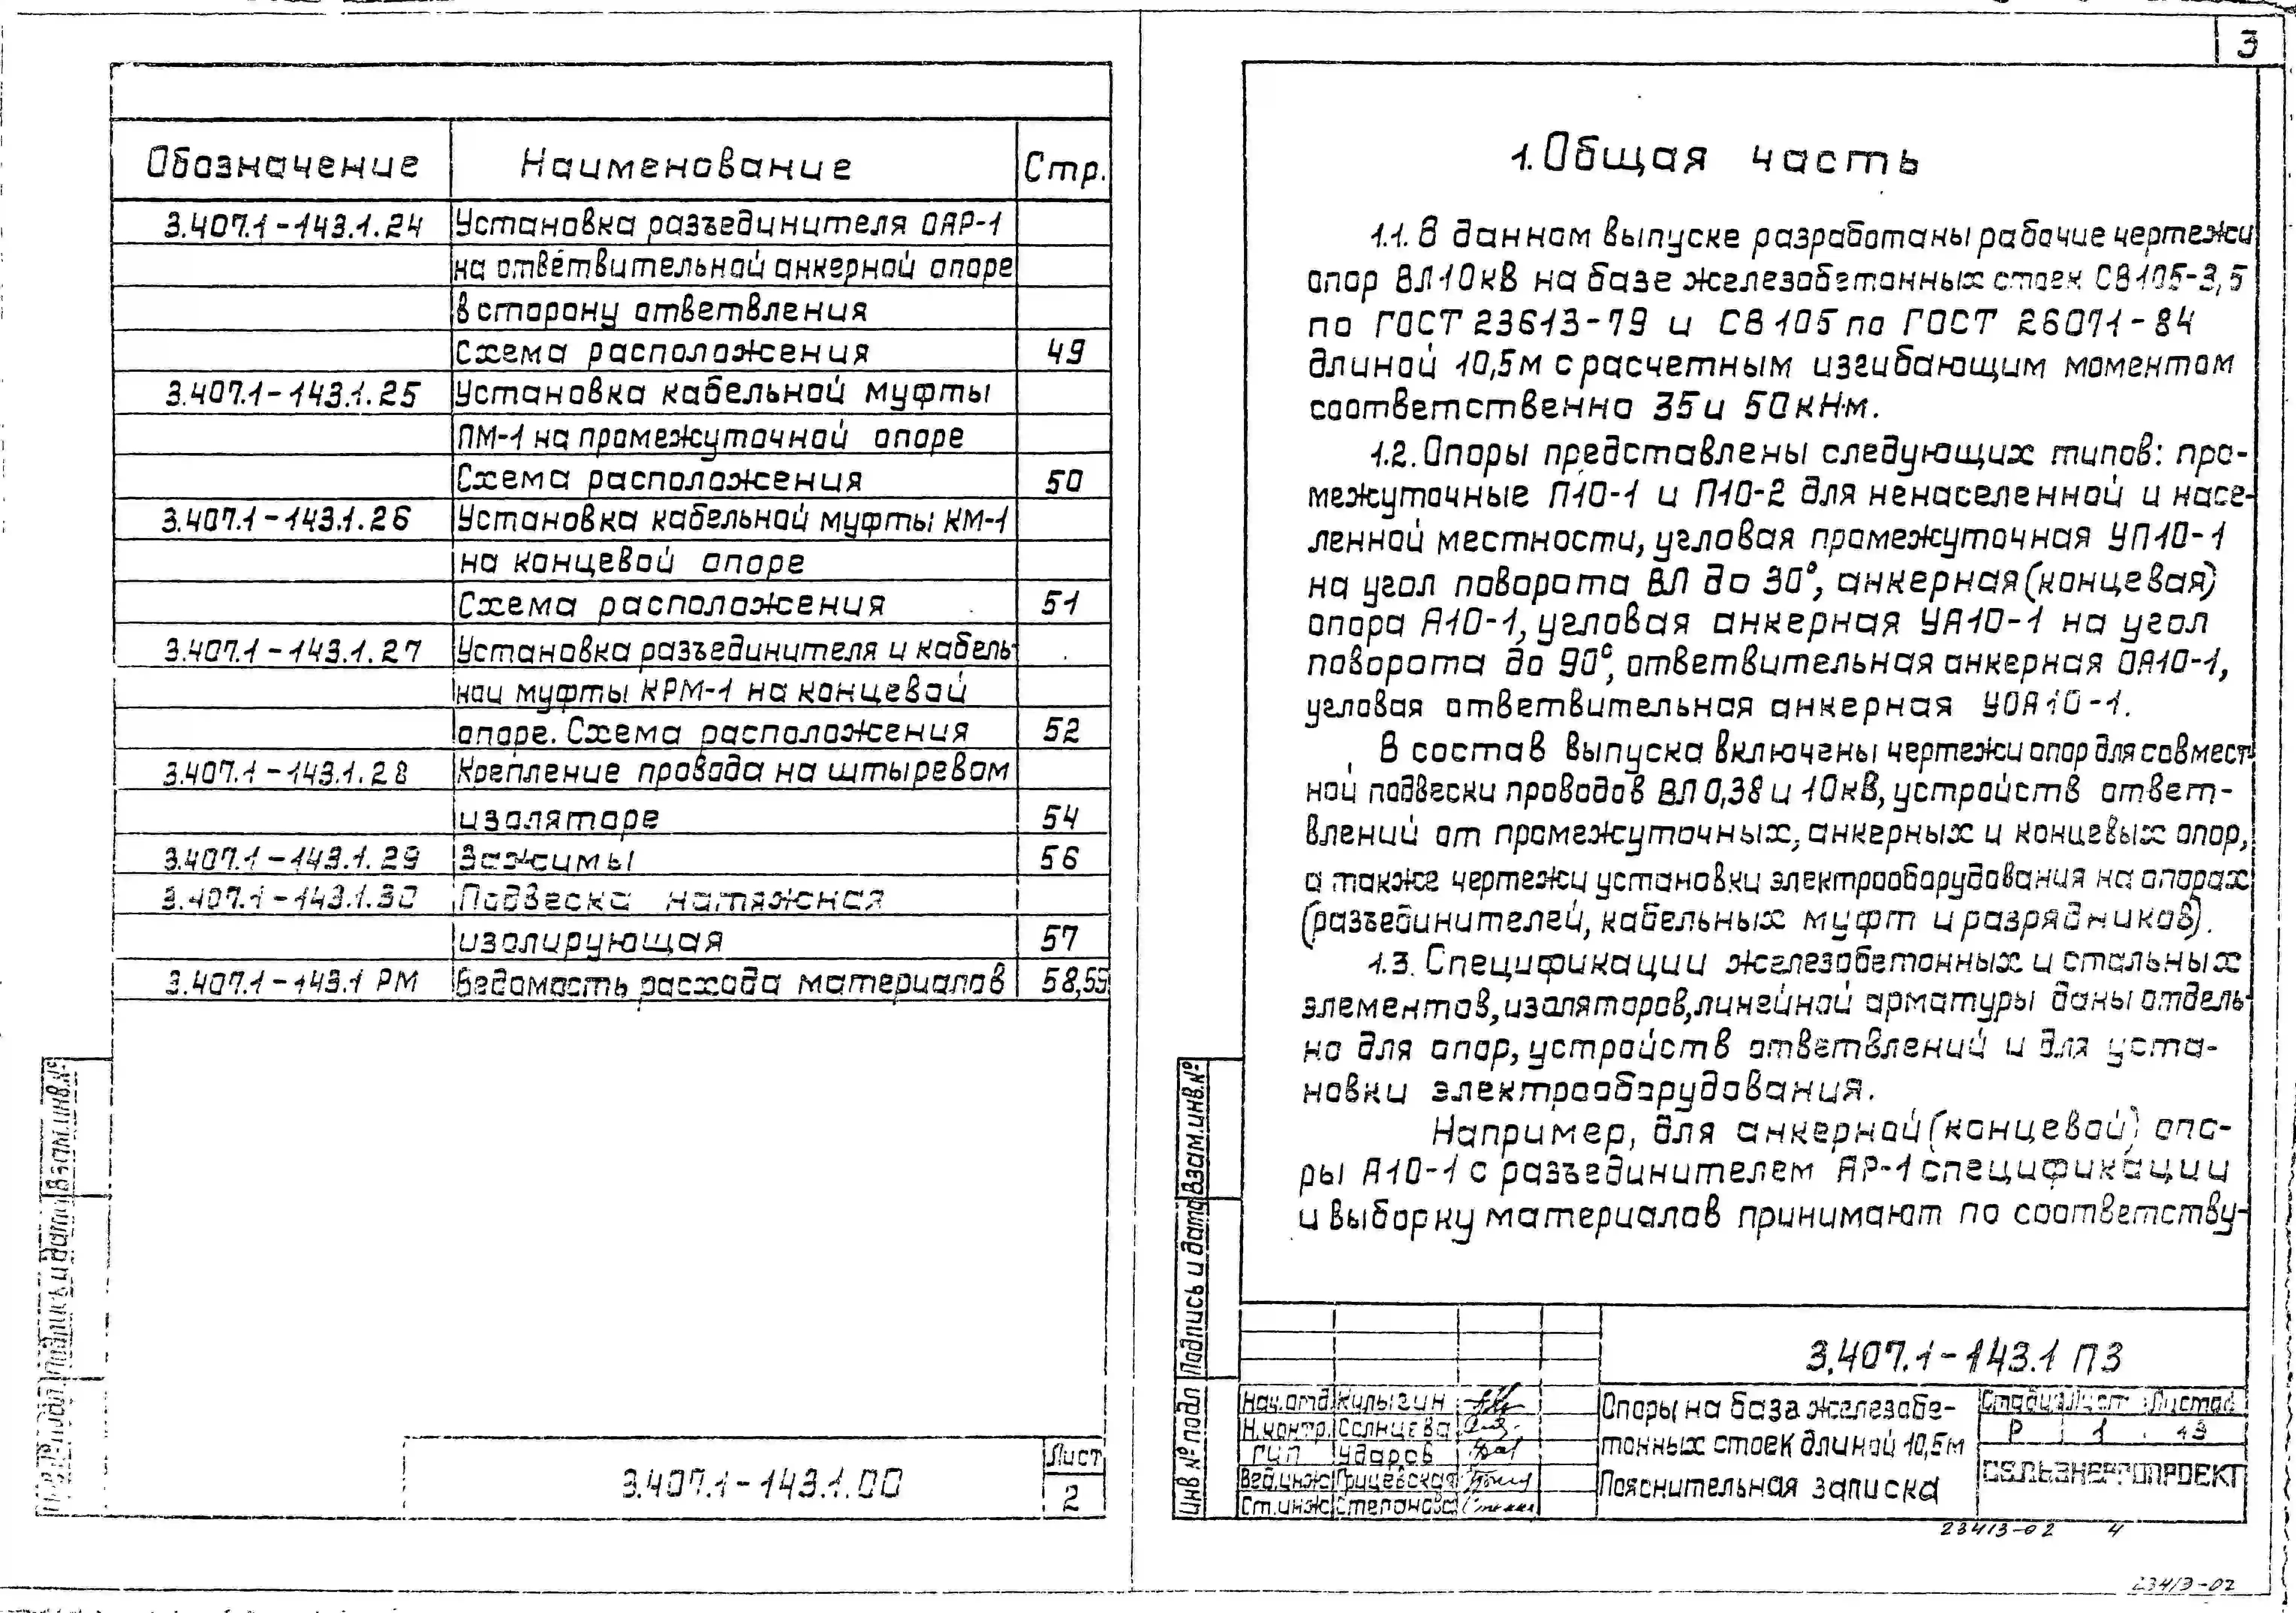 Обозначение Наименование Стр.
3.407.1-143.1.24 Установка разъединителя ОАР-1
на ответвительной анкерной опоре
в сторону ответвления
Схема расположения 49
3.407.1-143.1.25 Установка кабельной муфты
ПМ-1 на промежуточной опоре
Схема расположения 50
3.407.1-143.1.26 Установка кабельной муфты КМ-1
на концевой опоре
Схема расположения 51
3.407.1-143.1.27 Установка разъединителя и кабель-
ной муфты КРМ-1 на концевой
опоре. Схема расположения 52
3.407.1-143.1.28 Крепление провода на штыревом
изоляторе 54
3.407.1-143.1.29 Зажимы 56
3.407.1-143.1.30 Подвеска натяжная
изолирующая 57
3.407.1-143.1 РМ Ведомость расхода материалов 58,59
Взам.инв.№
Подпись и дата
Инв.№ подл.
3.407.1-143.1.00
Лист
2
3
1. Общая часть
1.1. В данном выпуске разработаны рабочие чертежи
опор ВЛ 10 кВ на базе железобетонных стоек СВ105-3,5
по ГОСТ 23613-79 и СВ105 по ГОСТ 26071-84
длиной 10,5м с расчетным изгибающим моментом
соответственно 35 и 50 кН·м.
1.2. Опоры представлены следующих типов: про-
межуточные П10-1 и П10-2 для ненаселенной и насе-
ленной местности, угловая промежуточная УП10-1
на угол поворота ВЛ до 30°, анкерная (концевая)
опора А10-1, угловая анкерная УА10-1 на угол
поворота до 90°, ответвительная анкерная ОА10-1,
угловая ответвительная анкерная УОА10-1.
В состав выпуска включены чертежи опор для совмест-
ной подвески проводов ВЛ 0,38 и 10кВ, устройств ответ-
влений от промежуточных, анкерных и концевых опор,
а также чертежи установки электрооборудования на опорах
(разъединителей, кабельных муфт и разрядников).
1.3. Спецификации железобетонных и стальных
элементов, изоляторов, линейной арматуры даны отдель-
но для опор, устройств ответвлений и для уста-
новки электрооборудования.
Например, для анкерной (концевой) опо-
ры А10-1 с разъединителем АР-1 спецификации
и выборку материалов принимают по соответству-
Взам.инв.№
Подпись и дата
Инв № подл
3.407.1-143.1 ПЗ
Нач.отд. Кулыгин
Н.контр. Солнцева
ГИП Ударов
Вед.инж. Грицевская
Ст.инж. Степанова
Опоры на база железобе-
тонных стоек длиной 10,5м
Пояснительная записка
Стадия Лист Листов
Р 1 43
СЕЛЬЭНЕРГОПРОЕКТ
23413-02 4
23413-02